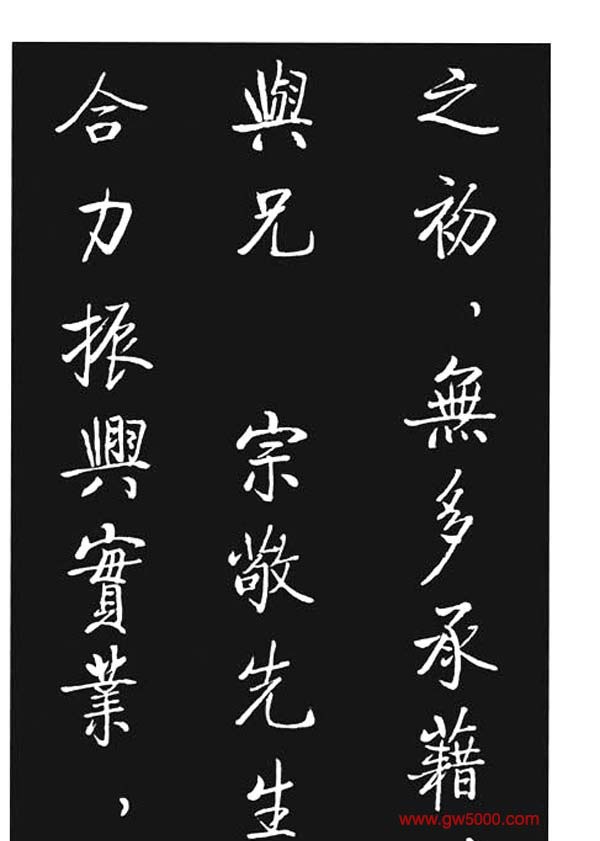 之初，無多承藉，
與兄 宗敬先生
合力振興實業，
www.gw5000.com